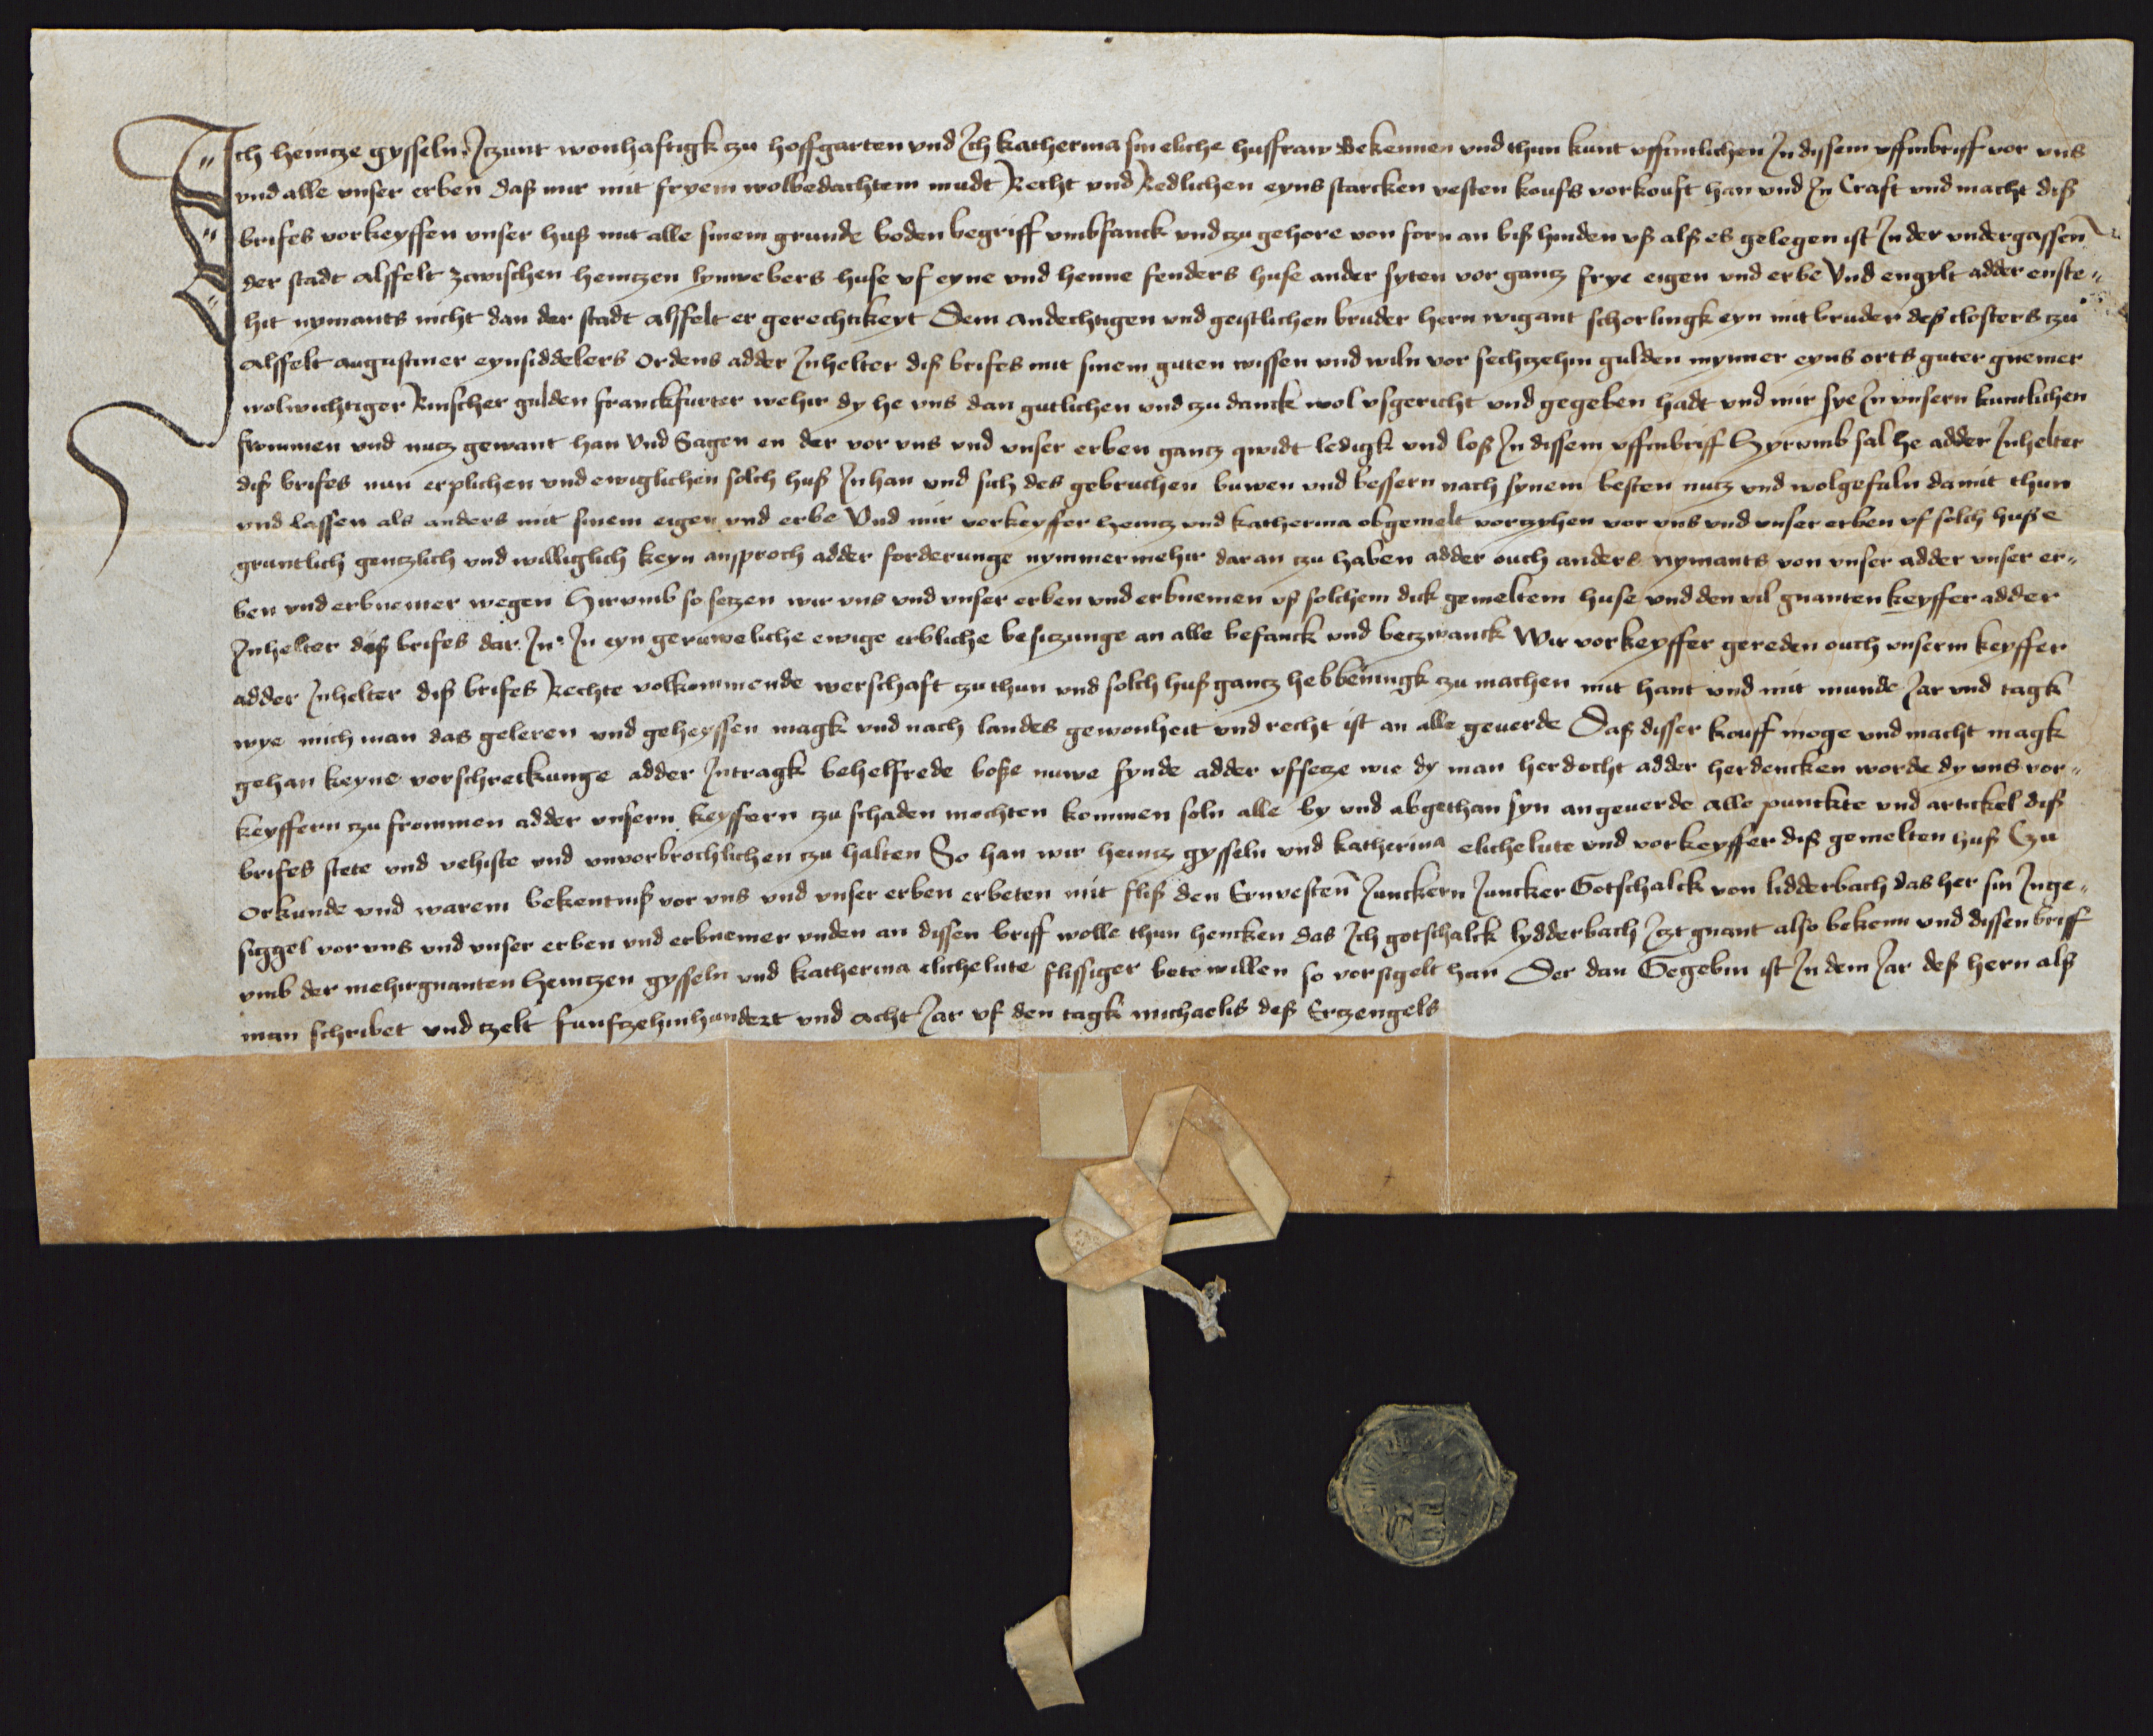 Ich heincze gysseln Iczunt wonhaftigk czu hoffgarten vnd Ich katherina sin eliche hussfraw Bekennen vnd thun kunt vffintlichen In dissem vffinbriff vor vns
vnd alle vnser erben daß mir mit fryem wolbedachtem mudt Recht vnd Redlichen eyns starcken vesten koufs vorkouft han vnd In Craft vnd macht diß
brifes vorkeyffen vnser huß mit alle sinem grunde boden begriff vmbfanck vnd czu gehore von forn an biß hinden vß alß es gelegen ist In der vndergassen
der stadt alsfelt zcwischen heinczen lynwebers huse vf eyne vnd henne fenders huse ander syten vor gancz frye eigen vnd erbe Vnd engylt adder enste-
hit nymants nicht dan der stadt alsfelt er gerechtikeyt Dem andechtigen vnd geistlichen bruder hern wigant schorlingk eyn mit bruder deß closters czu
alsfelt augustiner eynsiddelers ordens adder Inhelter diß brifes mit sinem guten wissen vnd wiln vor sechczehin gulden mynner eyns orts guter gnemer
wolwichtiger Rinscher gulden franckfurter wehir dy he vns dan gutlichen vnd czu danck wol vsgericht vnd gegeben hadt vnd mir sye In vnsern kuntlichen
frommen vnd nucz gewant han Vnd Sagen en der vor vns vnd vnser erben gancz qwidt ledigk vnd loß In dissem vffinbriff Hyrvmb sal he adder Inhelter
diß brifes nun erplichen vnd ewiglichen solch huß Inhan vnd sich des gebruchen buwen vnd bessern nach synem besten nucz vnd wolgefaln damit thun
vnd lassen als anders mit sinem eigen vnd erbe Vnd mir vorkeyffer heincz vnd katherina obgemelt vorczyhen vor vns vnd vnser erben vf solch huße
gruntlich genczlich vnd williglich keyn ansproch adder forderunge nymmermehir dar an czu haben adder ouch anders nymants von vnser adder vnser er-
ben vnd erbnemer wegen Hirvmb so seczen wir vns vnd vnser erben vnd erbnemen vß solchem dick gemeltem huse vnd den vil gnanten keyffer adder
Inhelter diß brifes dar In In eyn geruweliche ewige erbliche besiczunge an alle befanck vnd beczwanck Wir vorkeyffer gereden ouch vnserm keyffer
adder Inhelter diß brifes Rechte volkommende werschaft czu thun vnd solch huß gancz hebbeningk czu machen mit hant vnd mit munde Jar vnd tagk
wye mich man das geleren vnd geheyssen magk vnd nach landes gewonheit vnd recht ist an alle geuerde Daß disser kouff moge vnd macht magk
gehan keyne vorschreckunge adder Intragk behelfrede boße nuwe fynde adder vffsecze wie dy man herdocht adder herdencken worde dy vns vor-
keyffern czu frommen adder vnsern keyffern czu schaden mochten kommen soln alle by vnd abgethan syn an geuerde alle punckte vnd artickel diß
brifes stete vnd vehiste vnd vnvorbrochlichen czu halten So han wir heincz gysseln vnd katherina elichelute vnd vorkeyffer diß gemelten huß Czu
orkunde vnd warem bekentniß vor vns vnd vnser erben erbeten mit fliß den Ernvesten Junckern Juncker Gotschalck von lidderbach das her sin Inge-
siggel vor vns vnd vnser erben vnd erbnemer vnden an dissen briff wolle thun hencken das Ich gotschalck lydderbach Iczt gnant also bekenn vnd dissen briff
vmb der mehirgnanten heinczen gysseln vnd katherina elichelute flissiger bete willen so vorsigelt han Der dan Gegebin ist In dem Jar deß hern alß
man schribet vnd czelt funfczehinhundert vnd acht Jar vf den tagk michaelis deß Erczengels